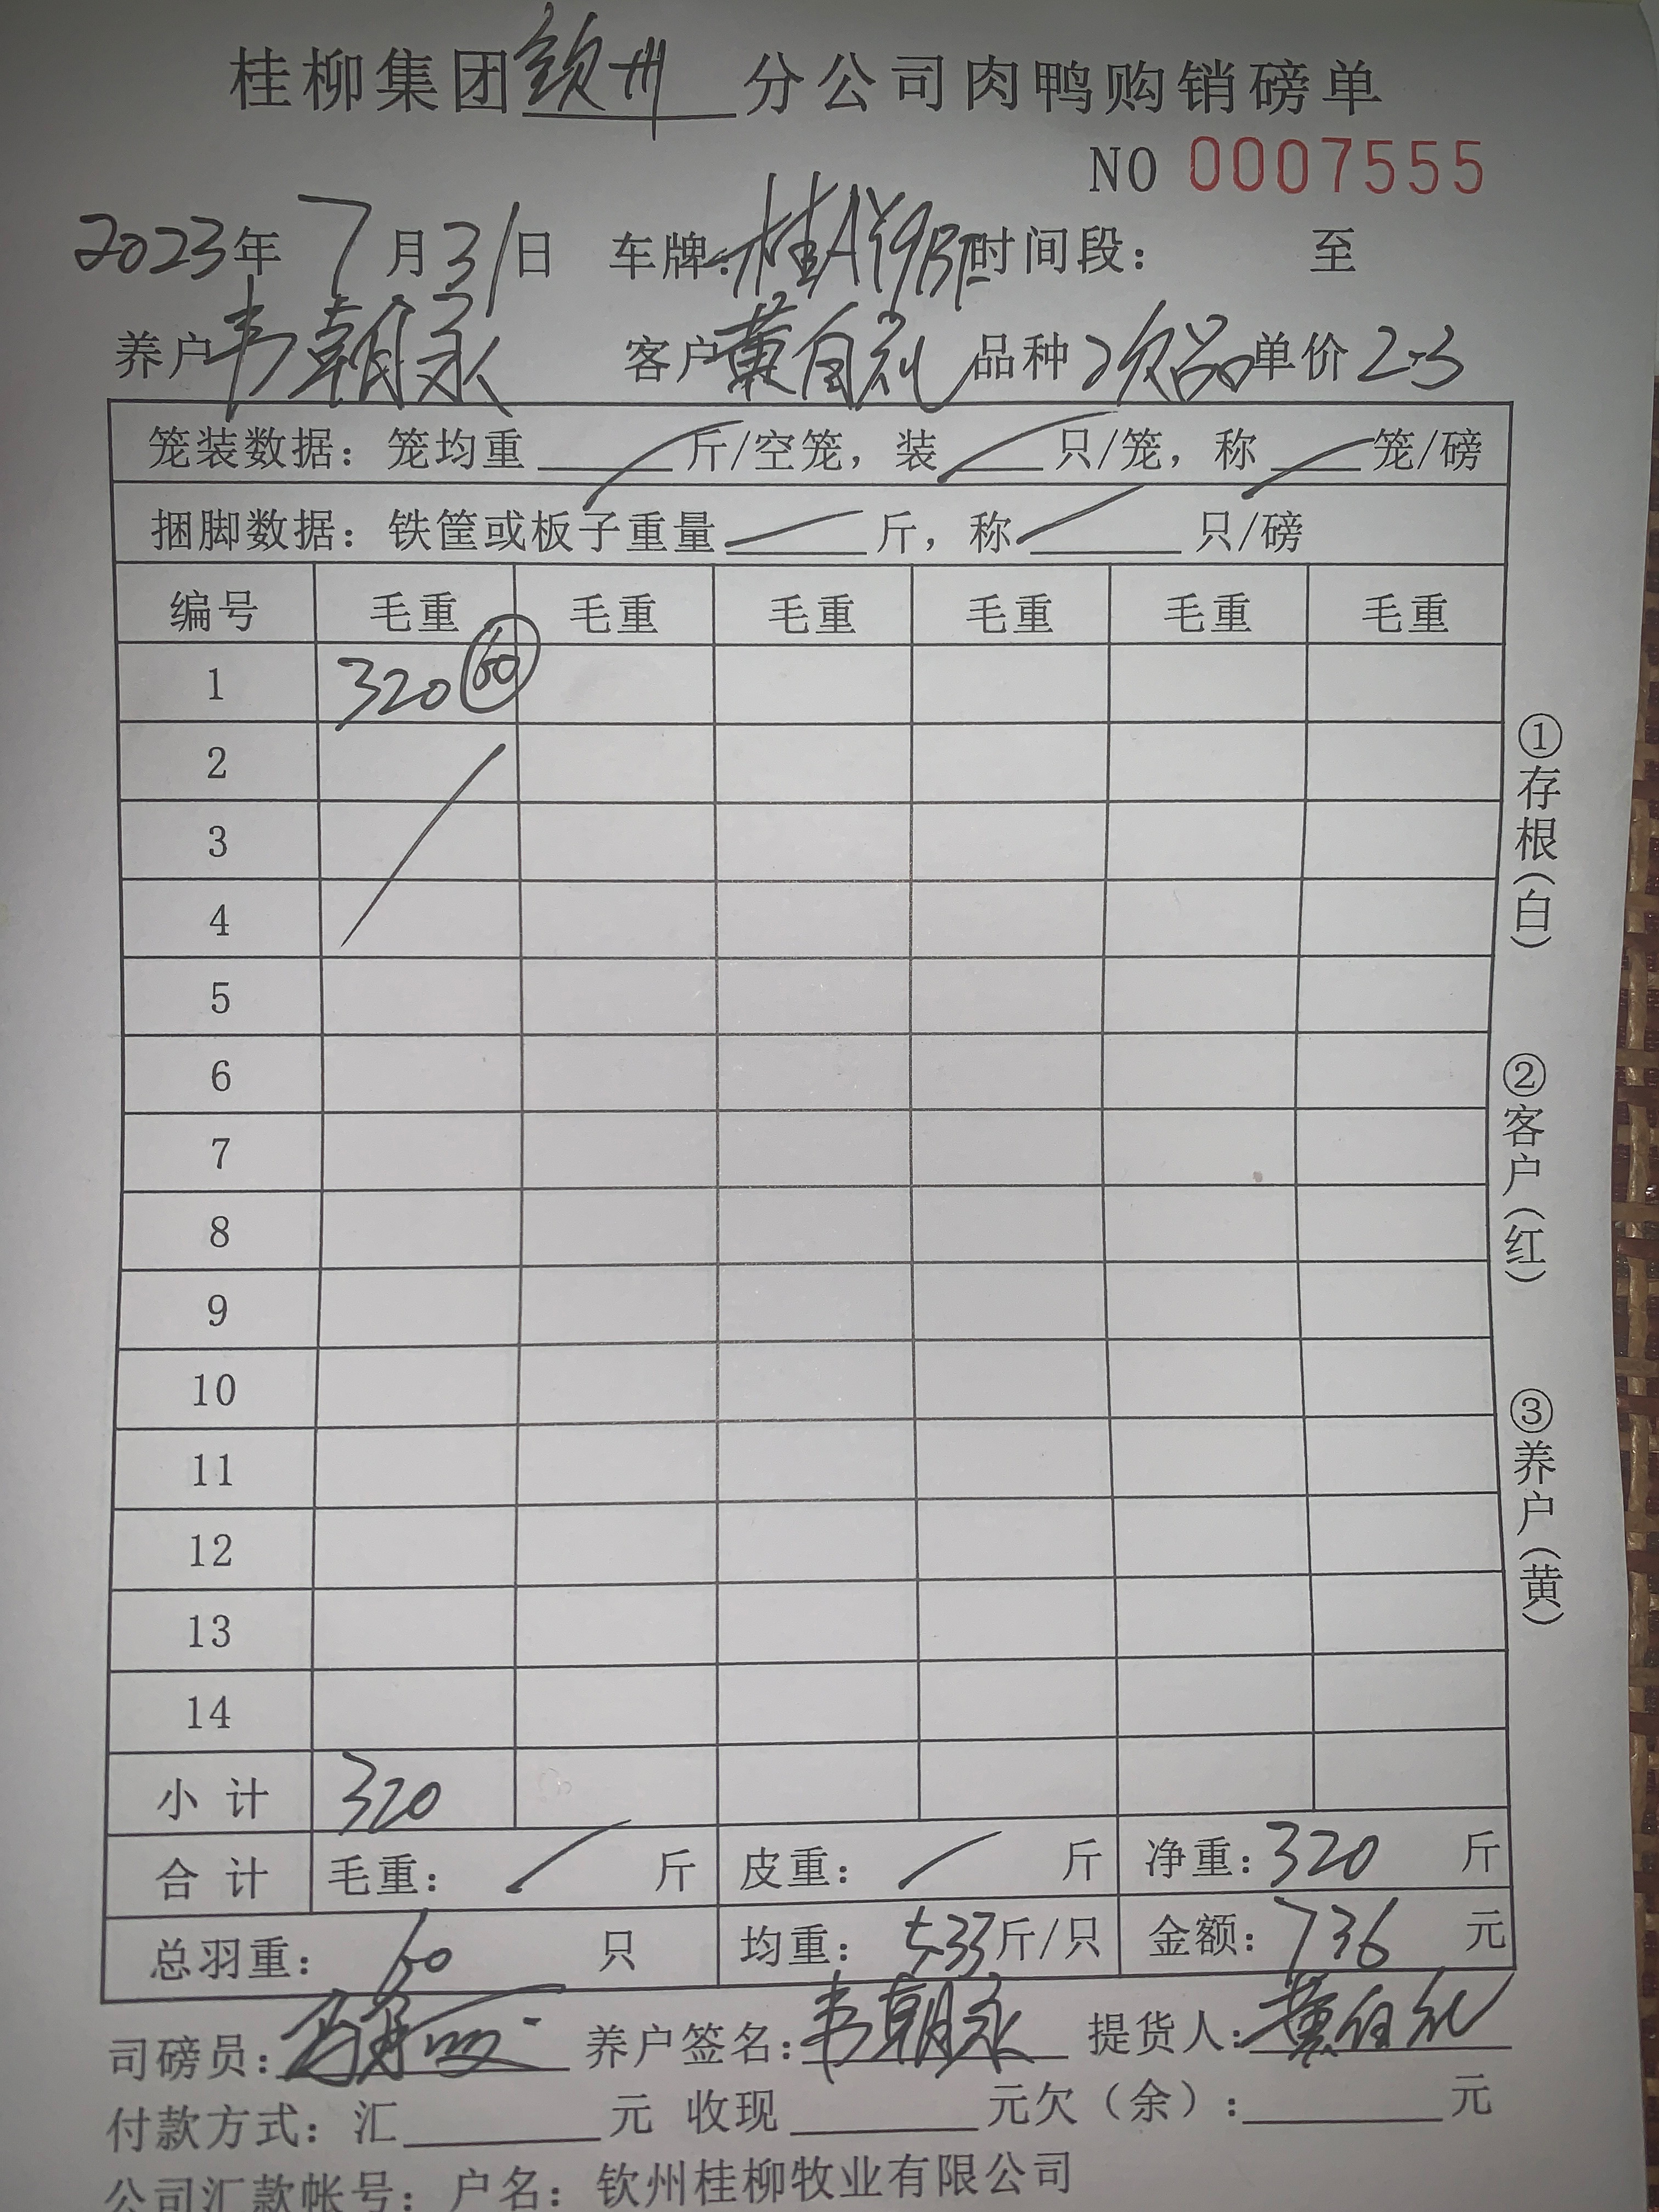 桂柳集团钦州分公司肉鸭购销磅单
NO 0007555
2023年 7月31日 车牌: 桂A 时间段: 至
养户 韦朝永 客户 黄自 品种 次品 单价 2.3
笼装数据: 笼均重 斤/空笼, 装 只/笼, 称 笼/磅
捆脚数据: 铁筐或板子重量 斤, 称 只/磅
编号 毛重 毛重 毛重 毛重 毛重 毛重
1 320 60
2
3
4
5
6
7
8
9
10
11
12
13
14
小计 320
合计 毛重: 斤 皮重: 斤 净重: 320 斤
总羽重: 60 只 均重: 5.33 斤/只 金额: 736 元
司磅员: 养户签名: 韦朝永 提货人: 黄
付款方式: 汇 元 收现 元欠(余): 元
公司汇款帐号: 户名: 钦州桂柳牧业有限公司
①存根(白)
②客户(红)
③养户(黄)